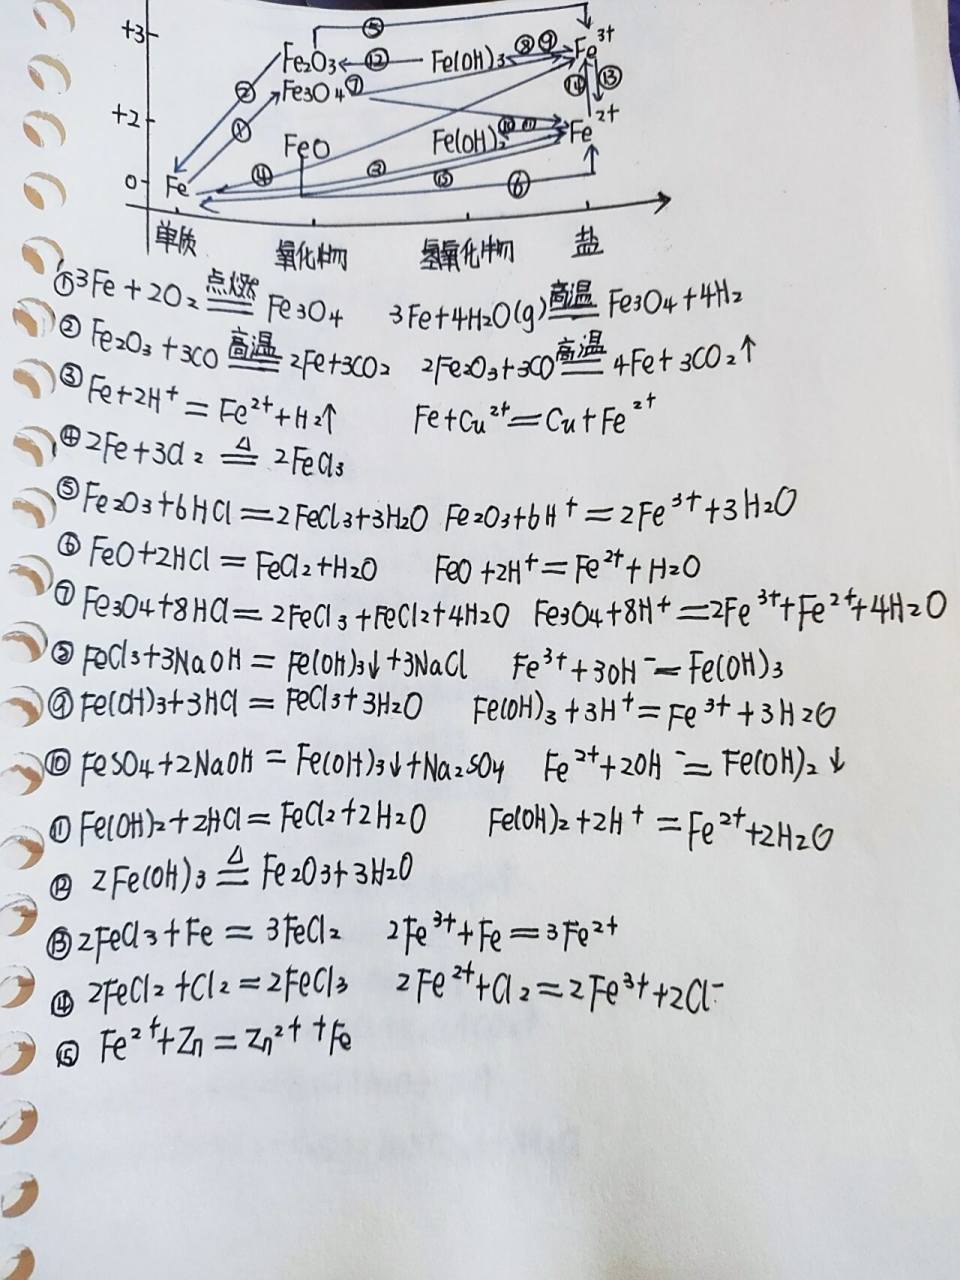 +3 ⑤ Fe³⁺
Fe₂O₃ ⑫ Fe(OH)₃ ⑧ ⑨
② Fe₃O₄ ⑦ ⑭ ⑬
+2 ① Fe²⁺
FeO Fe(OH)₂ ⑩ ⑪
0 Fe ④ ③ ⑮ ⑥
单质 氧化物 氢氧化物 盐
①3Fe+2O₂ 点燃══ Fe₃O₄ 3Fe+4H₂O(g) 高温══ Fe₃O₄+4H₂
② Fe₂O₃+3CO 高温══ 2Fe+3CO₂ 2Fe₂O₃+3CO 高温══ 4Fe+3CO₂↑
③ Fe+2H⁺=Fe²⁺+H₂↑ Fe+Cu²⁺=Cu+Fe²⁺
④ 2Fe+3Cl₂ △══ 2FeCl₃
⑤ Fe₂O₃+6HCl=2FeCl₃+3H₂O Fe₂O₃+6H⁺=2Fe³⁺+3H₂O
⑥ FeO+2HCl=FeCl₂+H₂O FeO+2H⁺=Fe²⁺+H₂O
⑦ Fe₃O₄+8HCl=2FeCl₃+FeCl₂+4H₂O Fe₃O₄+8H⁺=2Fe³⁺+Fe²⁺+4H₂O
⑧ FeCl₃+3NaOH=Fe(OH)₃↓+3NaCl Fe³⁺+3OH⁻=Fe(OH)₃
⑨ Fe(OH)₃+3HCl=FeCl₃+3H₂O Fe(OH)₃+3H⁺=Fe³⁺+3H₂O
⑩ FeSO₄+2NaOH=Fe(OH)₃↓+Na₂SO₄ Fe²⁺+2OH⁻=Fe(OH)₂↓
⑪ Fe(OH)₂+2HCl=FeCl₂+2H₂O Fe(OH)₂+2H⁺=Fe²⁺+2H₂O
⑫ 2Fe(OH)₃ △══ Fe₂O₃+3H₂O
⑬ 2FeCl₃+Fe=3FeCl₂ 2Fe³⁺+Fe=3Fe²⁺
⑭ 2FeCl₂+Cl₂=2FeCl₃ 2Fe²⁺+Cl₂=2Fe³⁺+2Cl⁻
⑮ Fe²⁺+Zn=Zn²⁺+Fe